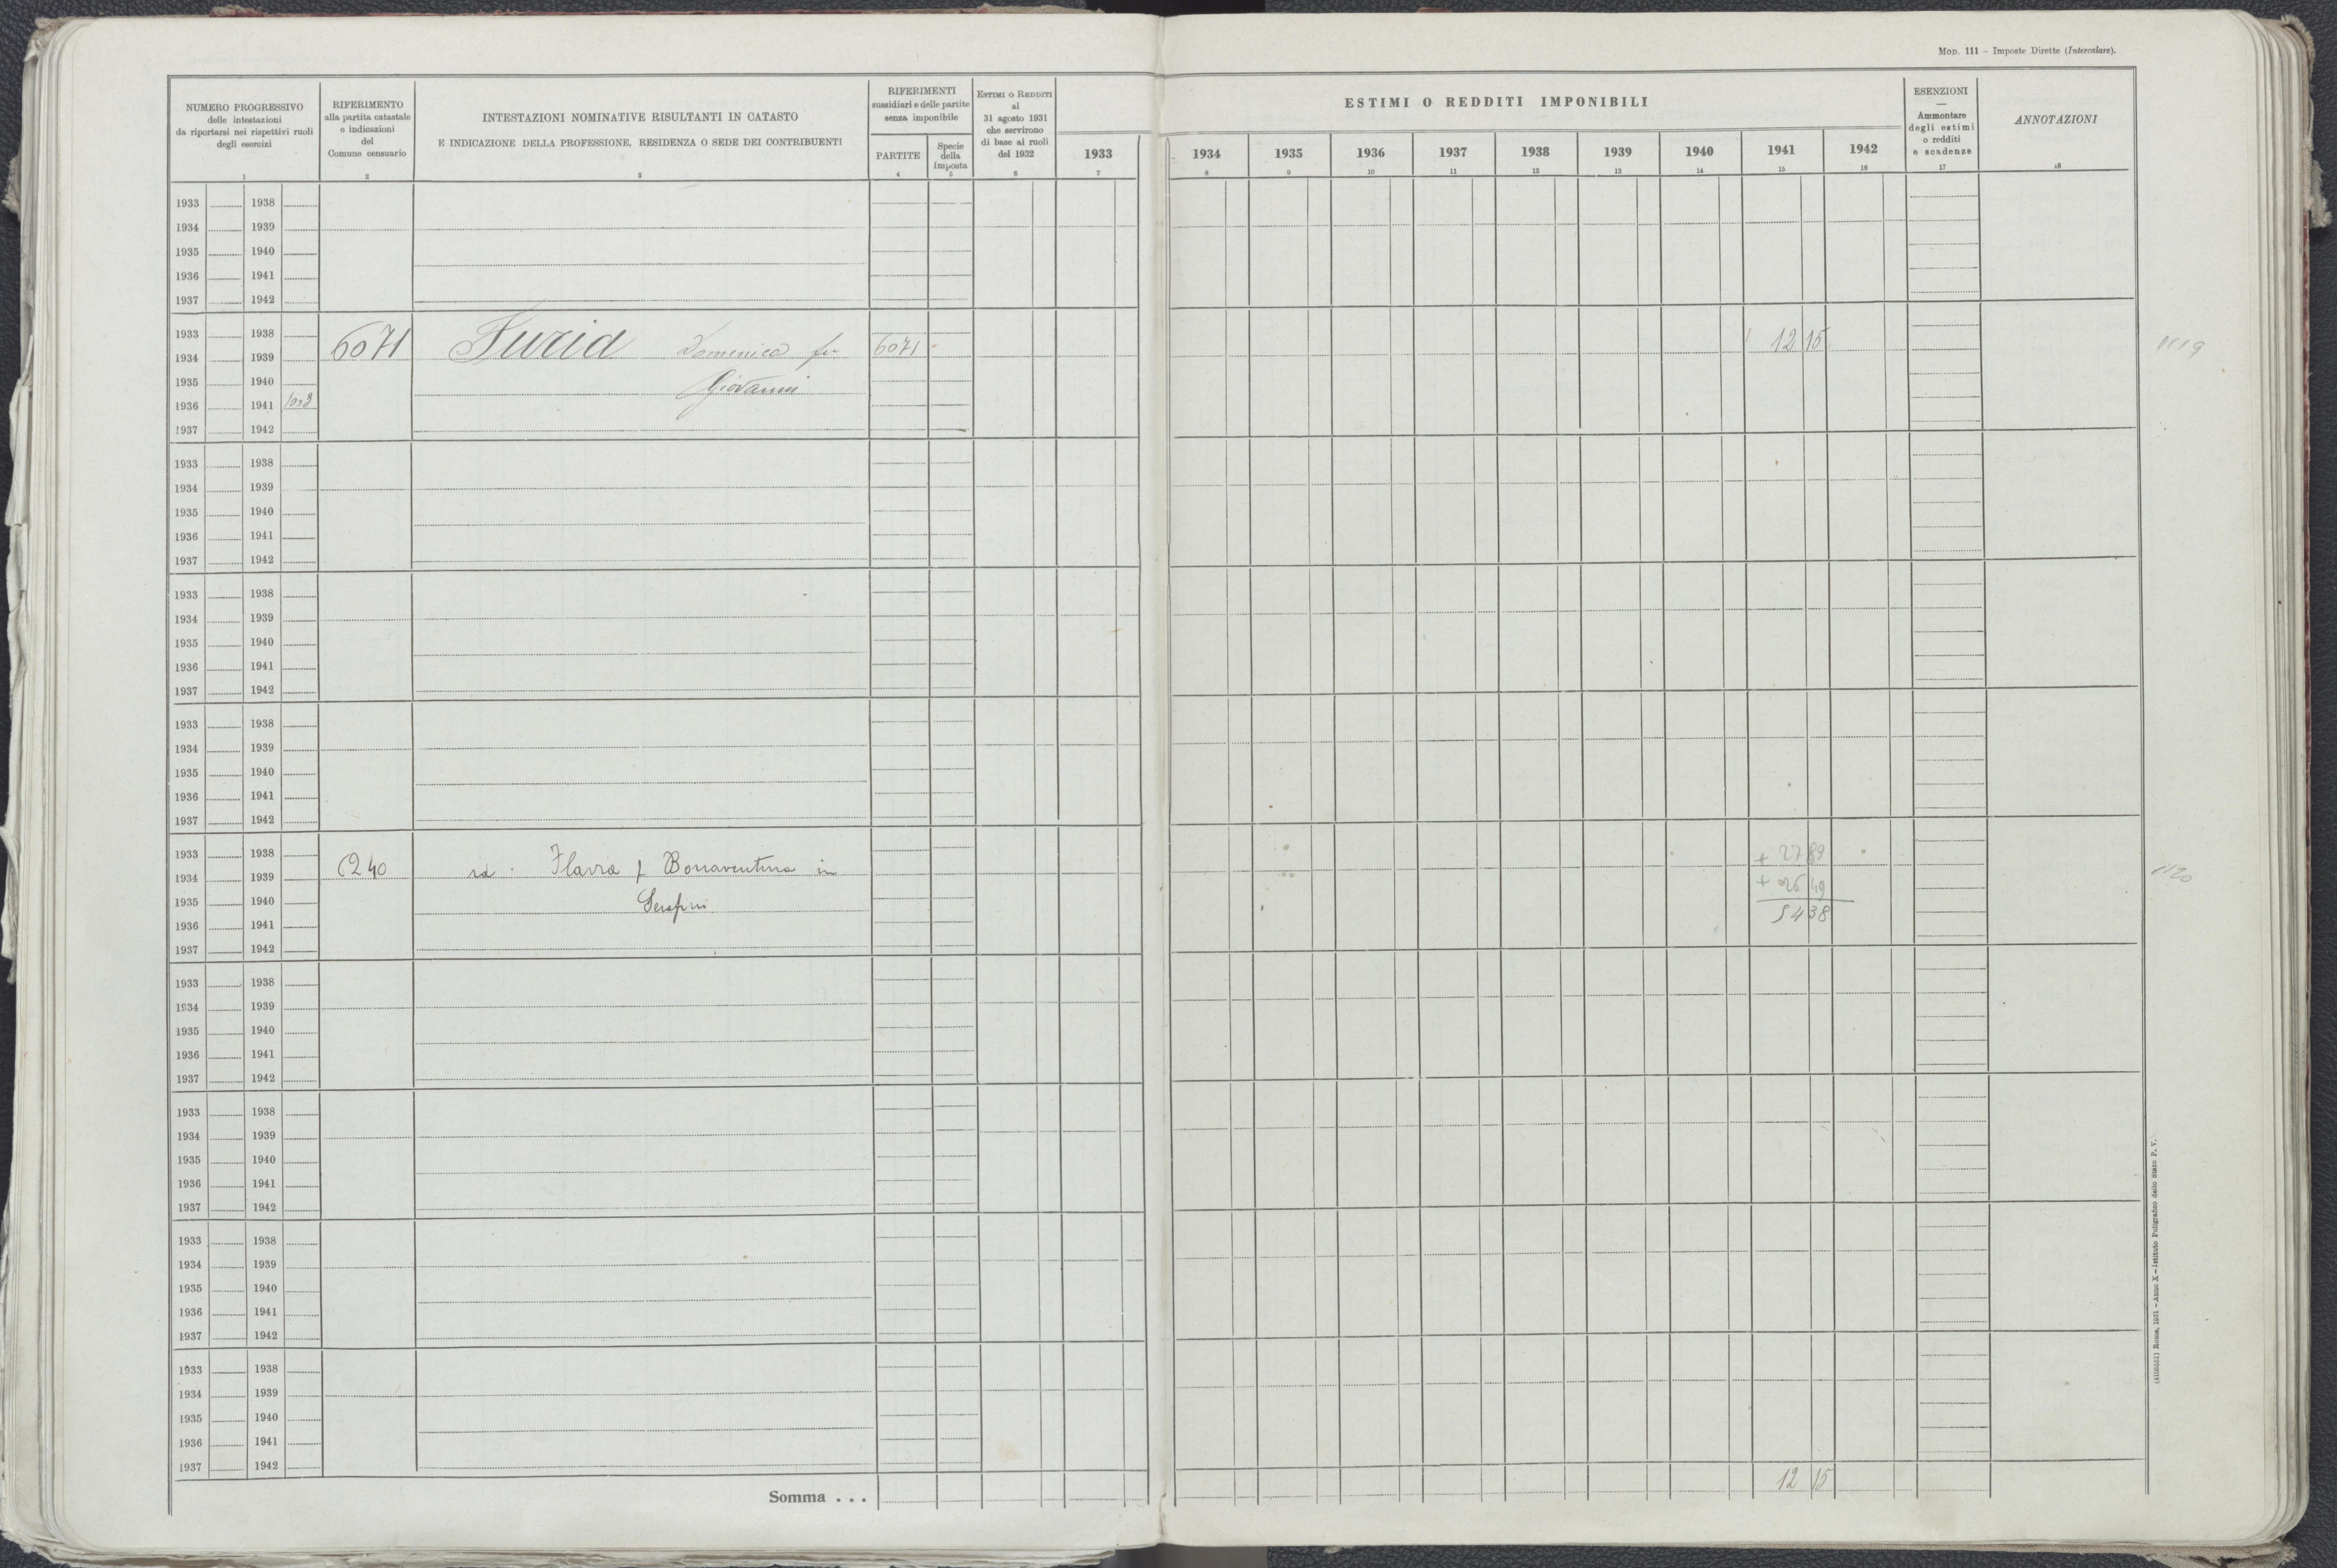 Mod. 111 – Imposte Dirette (Intercalare).
NUMERO PROGRESSIVO
delle intestazioni
da riportarsi nei rispettivi ruoli
degli esercizi
1
RIFERIMENTO
alla partita catastale
e indicazioni
del
Comune censuario
2
INTESTAZIONI NOMINATIVE RISULTANTI IN CATASTO
E INDICAZIONE DELLA PROFESSIONE, RESIDENZA O SEDE DEI CONTRIBUENTI
3
RIFERIMENTI
sussidiari e delle partite
senza imponibile
PARTITE
4
Specie
della
imposta
5
Estimi o Redditi
al
31 agosto 1931
che servirono
di base ai ruoli
del 1932
6
ESTIMI O REDDITI IMPONIBILI
1933 1934 1935 1936 1937 1938 1939 1940 1941 1942
7 8 9 10 11 12 13 14 15 16
ESENZIONI
—
Ammontare
degli estimi
o redditi
e scadenze
17
ANNOTAZIONI
18
1933 1938
1934 1939
1935 1940
1936 1941
1937 1942
1933 1938
1934 1939 6071 Domenico fu 6071 12 15 1119
1935 1940 Giovanni
1936 1941
1937 1942
1933 1938
1934 1939
1935 1940
1936 1941
1937 1942
1933 1938
1934 1939
1935 1940
1936 1941
1937 1942
1933 1938
1934 1939
1935 1940
1936 1941
1937 1942
1933 1938 + 27 89
1934 1939 Flavia f Bonaventura in + 26 49 1120
1935 1940 Serafini 54 38
1936 1941
1937 1942
1933 1938
1934 1939
1935 1940
1936 1941
1937 1942
1933 1938
1934 1939
1935 1940
1936 1941
1937 1942
1933 1938
1934 1939
1935 1940
1936 1941
1937 1942
1933 1938
1934 1939
1935 1940
1936 1941
1937 1942
Somma . . . 12 15
Roma, 1931 – Anno X – Istituto Poligrafico dello Stato P. V.